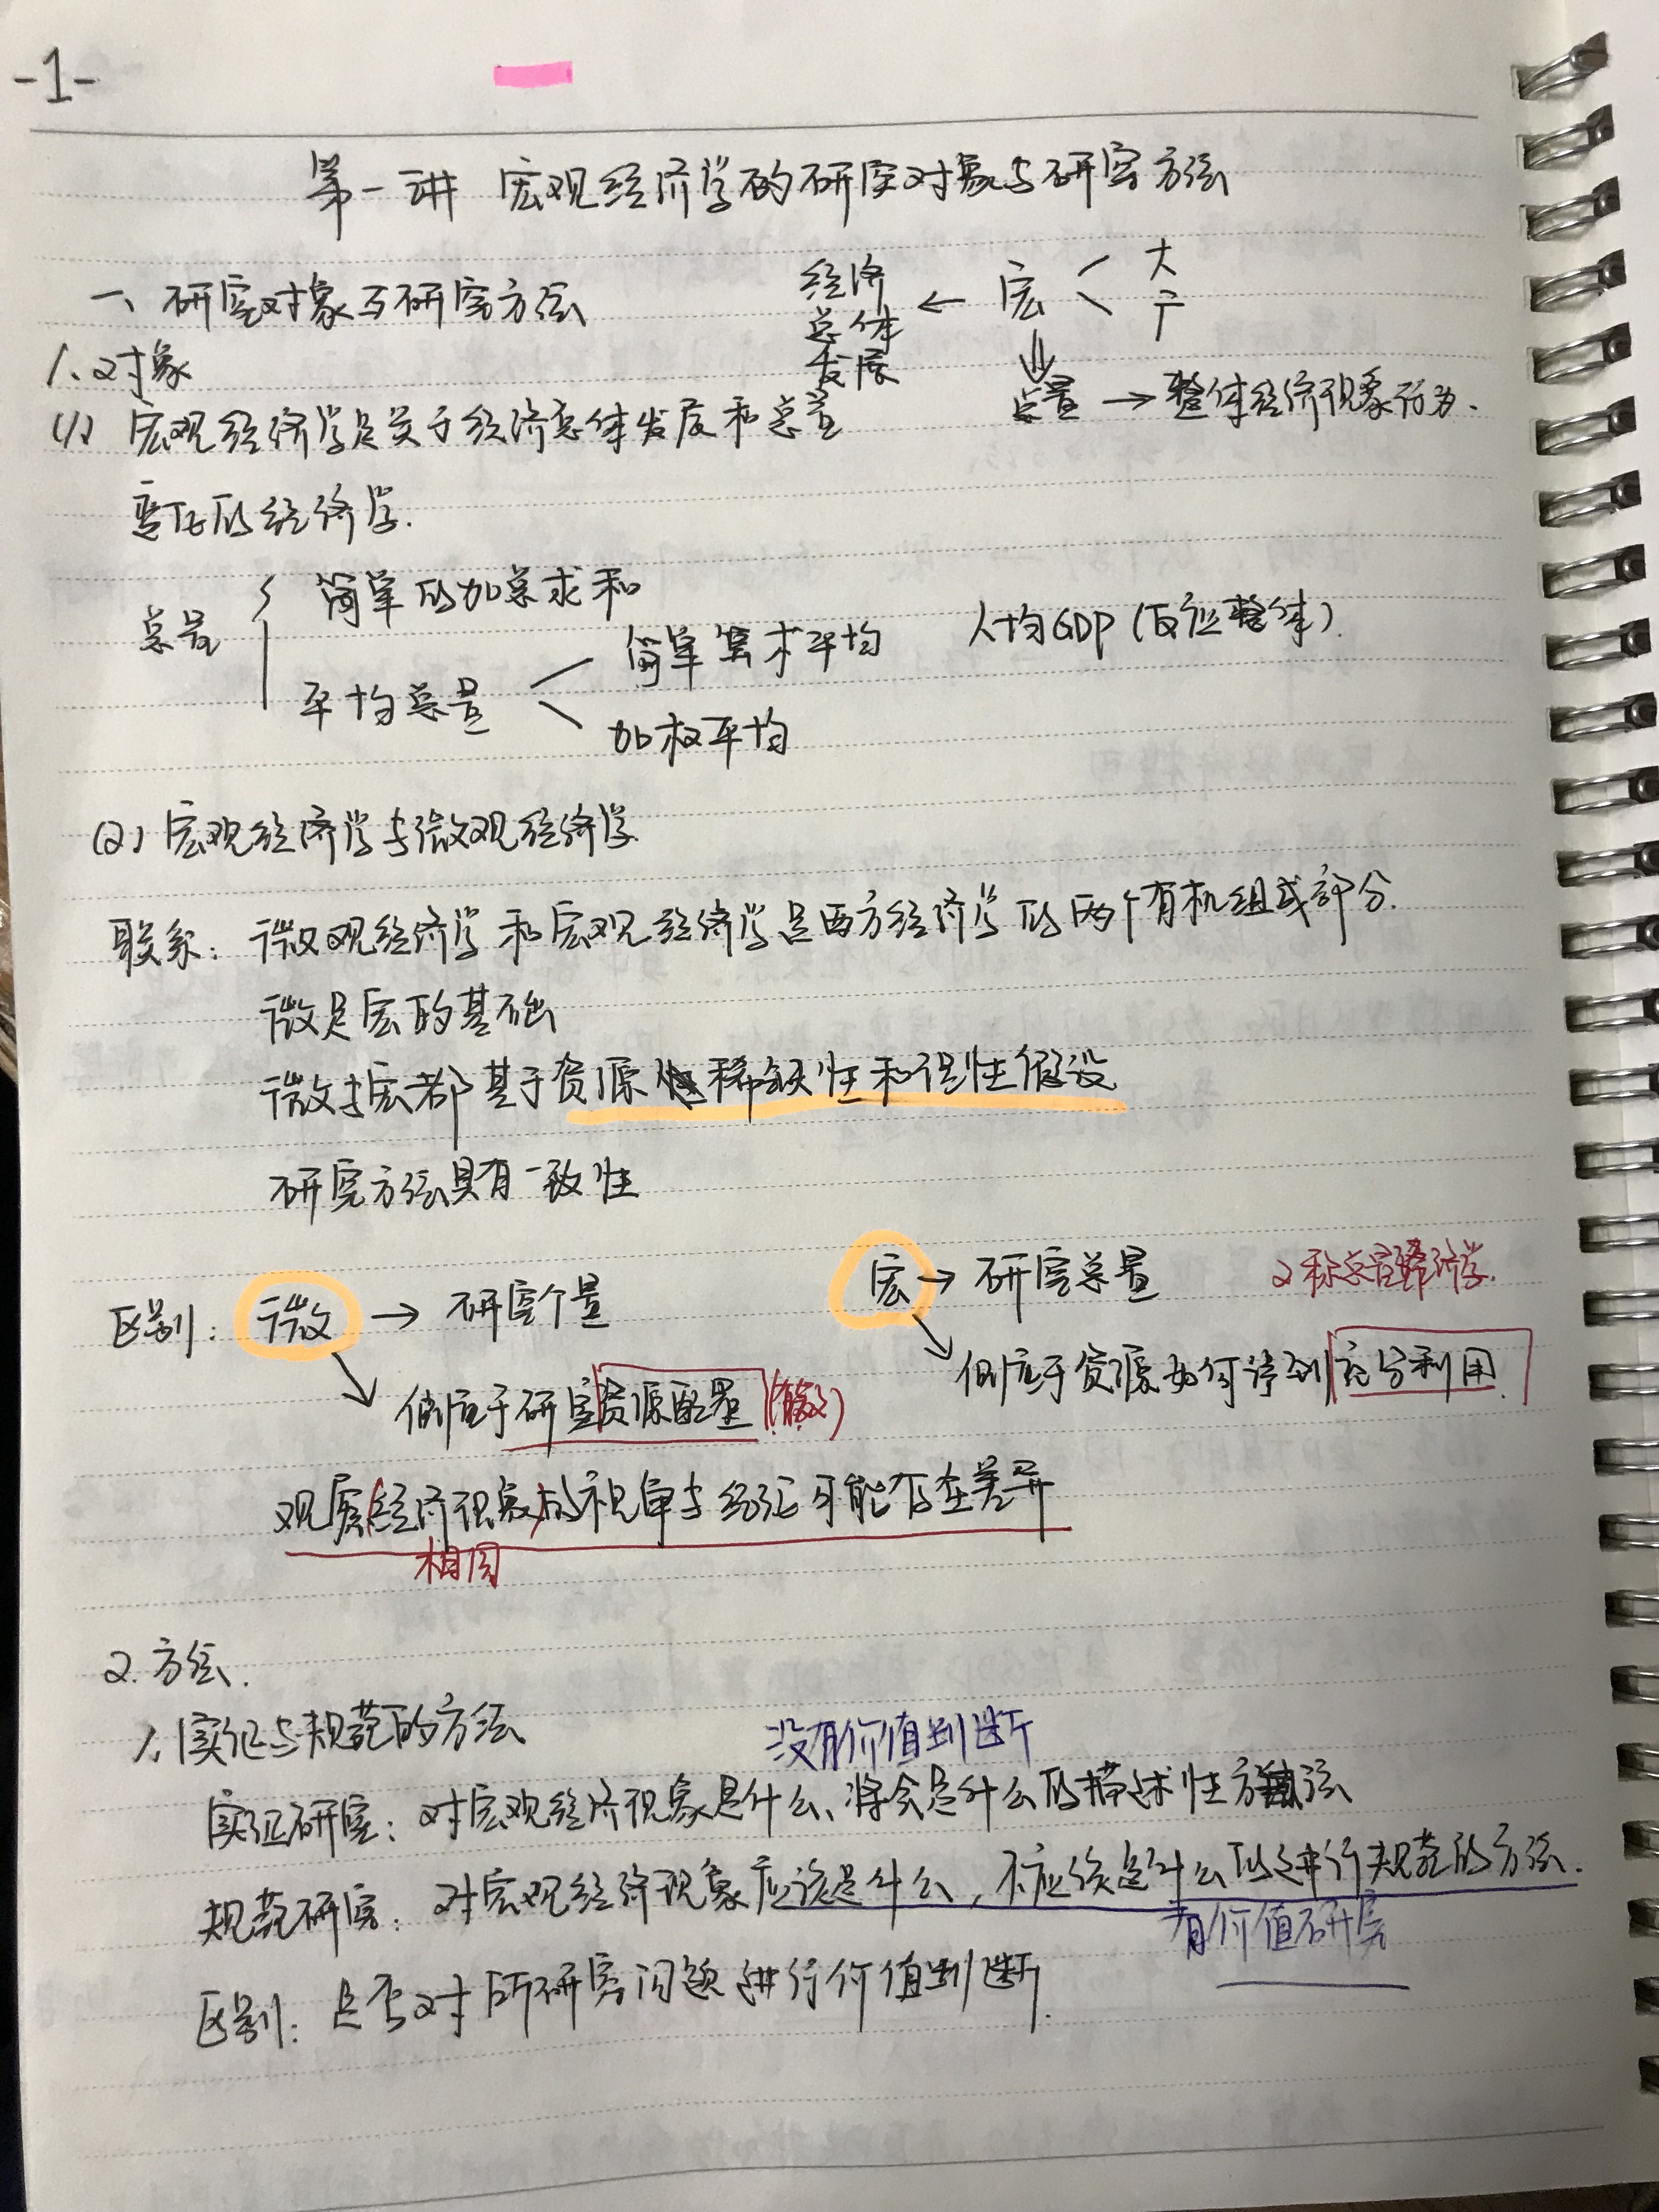 -1-
第一讲 宏观经济学的研究对象与研究方法
一、研究对象与研究方法
经济总体发展 ← 宏 < 大 广
1、对象
⇓ 总量 → 整体经济现象行为.
(1) 宏观经济学是关于经济总体发展和总量
变化的经济学.
总量 { 简单的加总求和
平均总量 < 简单算术平均 人均GDP (反应整体).
加权平均
(2) 宏观经济学与微观经济学
联系: 微观经济学和宏观经济学是西方经济学的两个有机组成部分.
微是宏的基础
微与宏都基于资源稀缺性和理性假设
研究方法具有一致性
区别: 微 → 研究个量 宏 → 研究总量 又称总量经济学.
↘ 侧重于研究资源配置 ↘ 侧重于资源如何得到充分利用
观察(经济现象)的视角与结论可能存在差异
相同
2. 方法.
1、实证与规范的方法
没有价值判断
实证研究: 对宏观经济现象是什么、将会是什么的描述性方法
规范研究: 对宏观经济现象应该是什么, 不应该是什么的进行规范的方法.
有价值研究
区别: 是否对所研究问题进行价值判断.